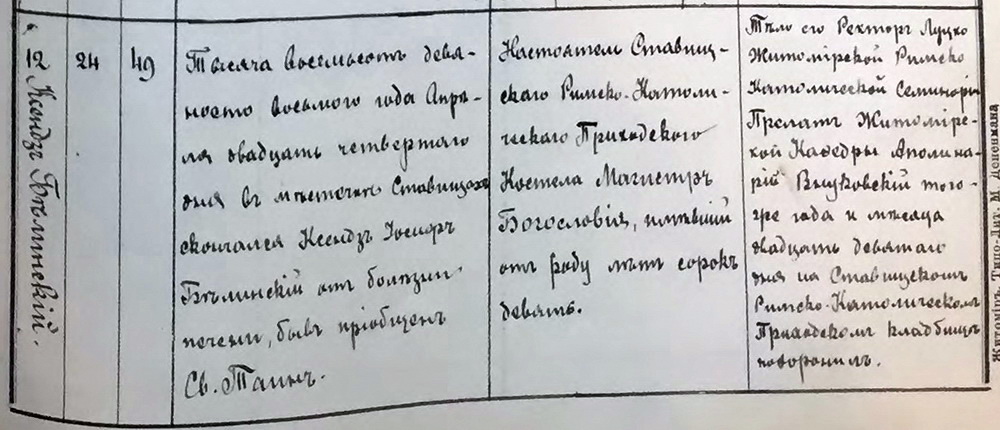 12
Ксендзъ Бѣлинскій.
24
49
Тысяча восемьсотъ девя-
носто восьмого года Апрѣ-
ля двадцать четвертаго
дня въ мѣстечкѣ Ставищахъ
скончался Ксендзъ Іосифъ
Бѣлинскій отъ болѣзни
печени, бывъ пріобщенъ
Св. Таинъ.
Настоятель Ставищ-
скаго Римско-Католи-
ческаго Приходского
Костела Магистръ
Богословія, имѣвшій
отъ роду лѣтъ сорокъ
девять.
Тѣло его Ректоръ Луцко
Житомірской Римско
Католической Семинаріи
Прелатъ Житомірс-
кой Кафедры Аполина-
рій Внуковскій того-
же года и мѣсяца
двадцать девятаго
дня на Ставищскомъ
Римско-Католическомъ
Приходскомъ кладбищѣ
похоронилъ.
Житоміръ, Типо-Лит. М. Дененмана